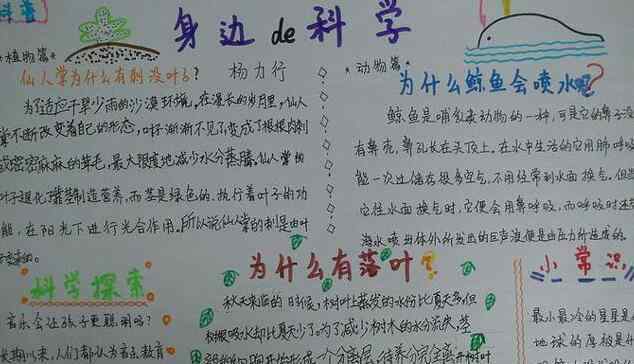 科普
身边de科学
*植物篇*
仙人掌为什么有刺没叶子?
杨力行
为了适应干旱少雨的沙漠环境,在漫长的岁月里,仙人
掌不断改变着自己的形态,叶子渐渐不见了变成了根根肉刺
或密密麻麻的茸毛,最大限度地减少水分蒸腾。仙人掌的
叶子退化 制造营养,而茎是绿色的,执行着叶子的功
能,在阳光下进行光合作用。所以说仙人掌的刺是由叶
变来的。
*动物篇*
为什么鲸鱼会喷水呢?
鲸鱼是哺乳类动物的一种,可是它的鼻子没
有鼻壳,鼻孔长在头顶上。在水中生活的它用肺呼吸
能一次过储存很多空气,不用经常到水面换气。但当
它往水面换气时,它便会用鼻呼吸,而呼吸时还
海水喷出体外所发出的巨声浪便是由压力所造成的。
科学探索
音乐会让孩子更聪明吗?
长期以来,人们都认为音乐教育
为什么有落叶?
秋天来临的时候,树叶上蒸发的水份比夏天多,但
树根吸水却比夏天少了。为了减少树木的水分流失,茎
一个分离层,待养分完全
小常识
最小最冷的星星是
地球的厚极